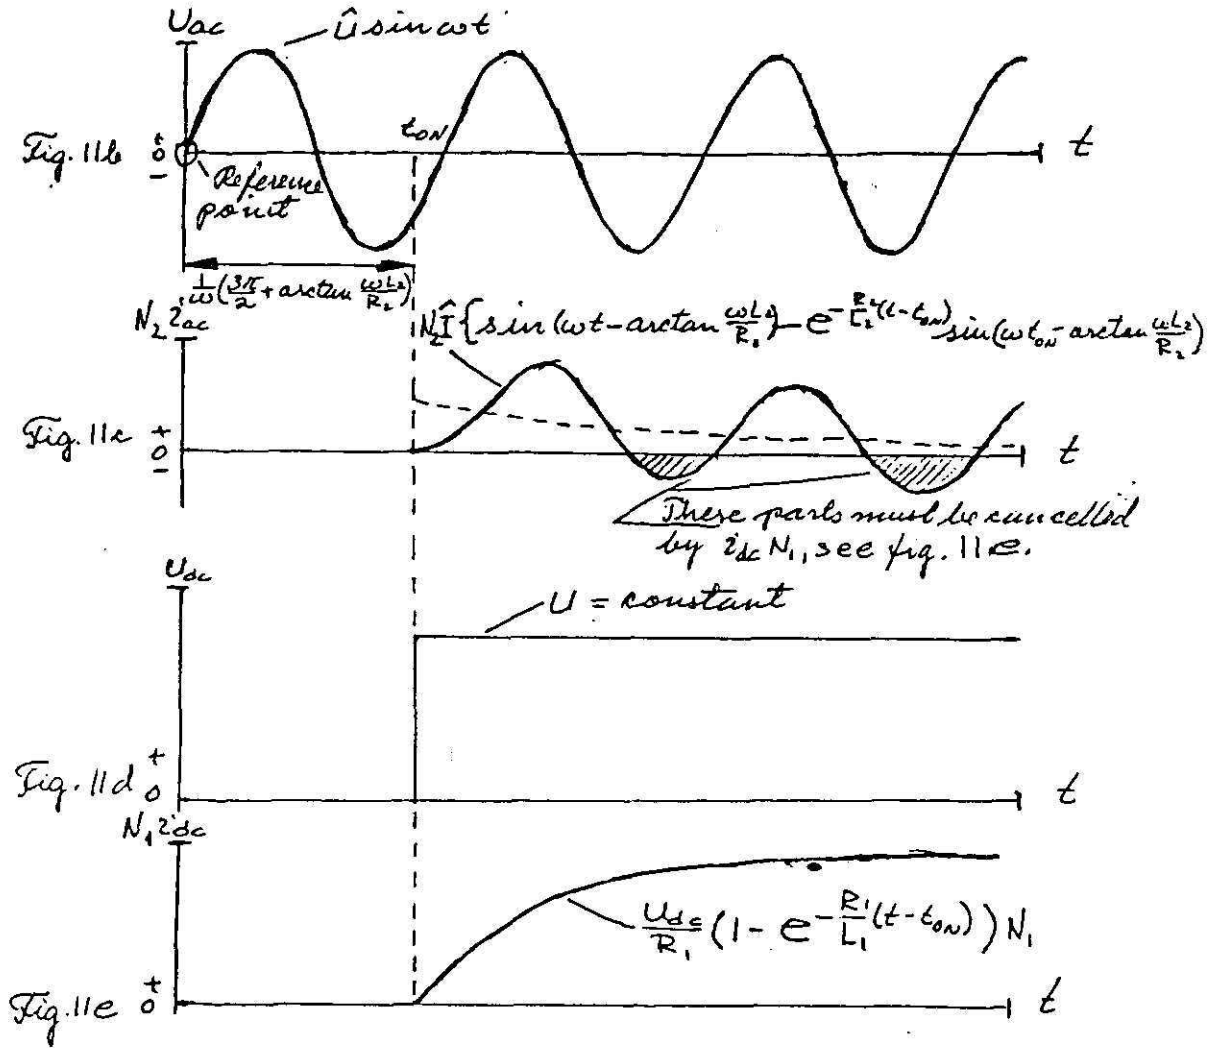 U ac
Û sin ωt
Fig. 11b
+
0
−
t ON
t
Reference
point
1/ω (3π/2 + arctan ωL₂/R₂)
N₂ i ac
N₂Î {sin (ωt − arctan ωL₂/R₂) − e^−R₂/L₂(t−t ON) sin (ωt ON − arctan ωL₂/R₂)
Fig. 11c
+
0
−
t
These parts must be cancelled
by i dc N₁, see fig. 11e.
U dc
U = constant
Fig. 11d
+
0
t
N₁ i dc
U dc/R₁ (1 − e^−R₁/L₁(t−t ON)) N₁
Fig. 11e
+
0
t